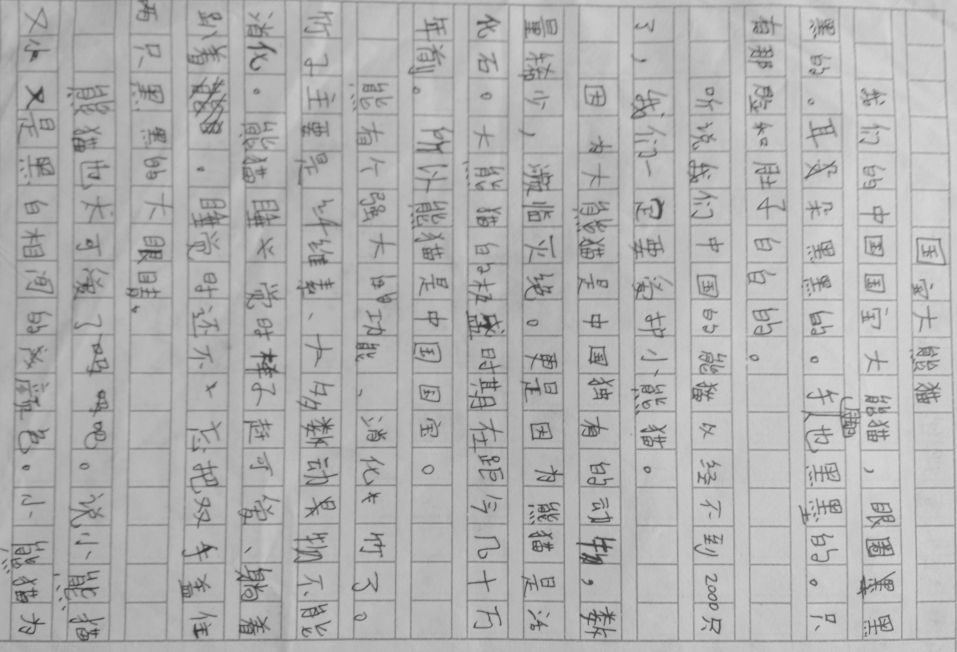 国宝大熊猫
我们的中国国宝大熊猫，眼圈黑
黑的。耳朵黑黑的。手脚也黑黑的。只
有那脸和肚子白白的。
听说我们中国的熊猫以经不到2000只
了，我们一定要爱护小熊猫。
因为大熊猫是中国独有的动物，数
量稀少，濒临灭绝。更是因为熊猫是活
化石。大熊猫的极盛时期在距今几十万
年前。所以熊猫是中国国宝。
能有个强大的功能、消化 竹了。
竹子主要是纤维素、大多数动 物不能
消化。熊猫睡觉时样子超可爱、躺着
趴着。睡觉时还不忘把双手盖住
两只黑黑的大眼睛。
熊猫也太可爱了吧吧吧。说小熊猫
又小又是黑白相间的颜色。小熊猫为